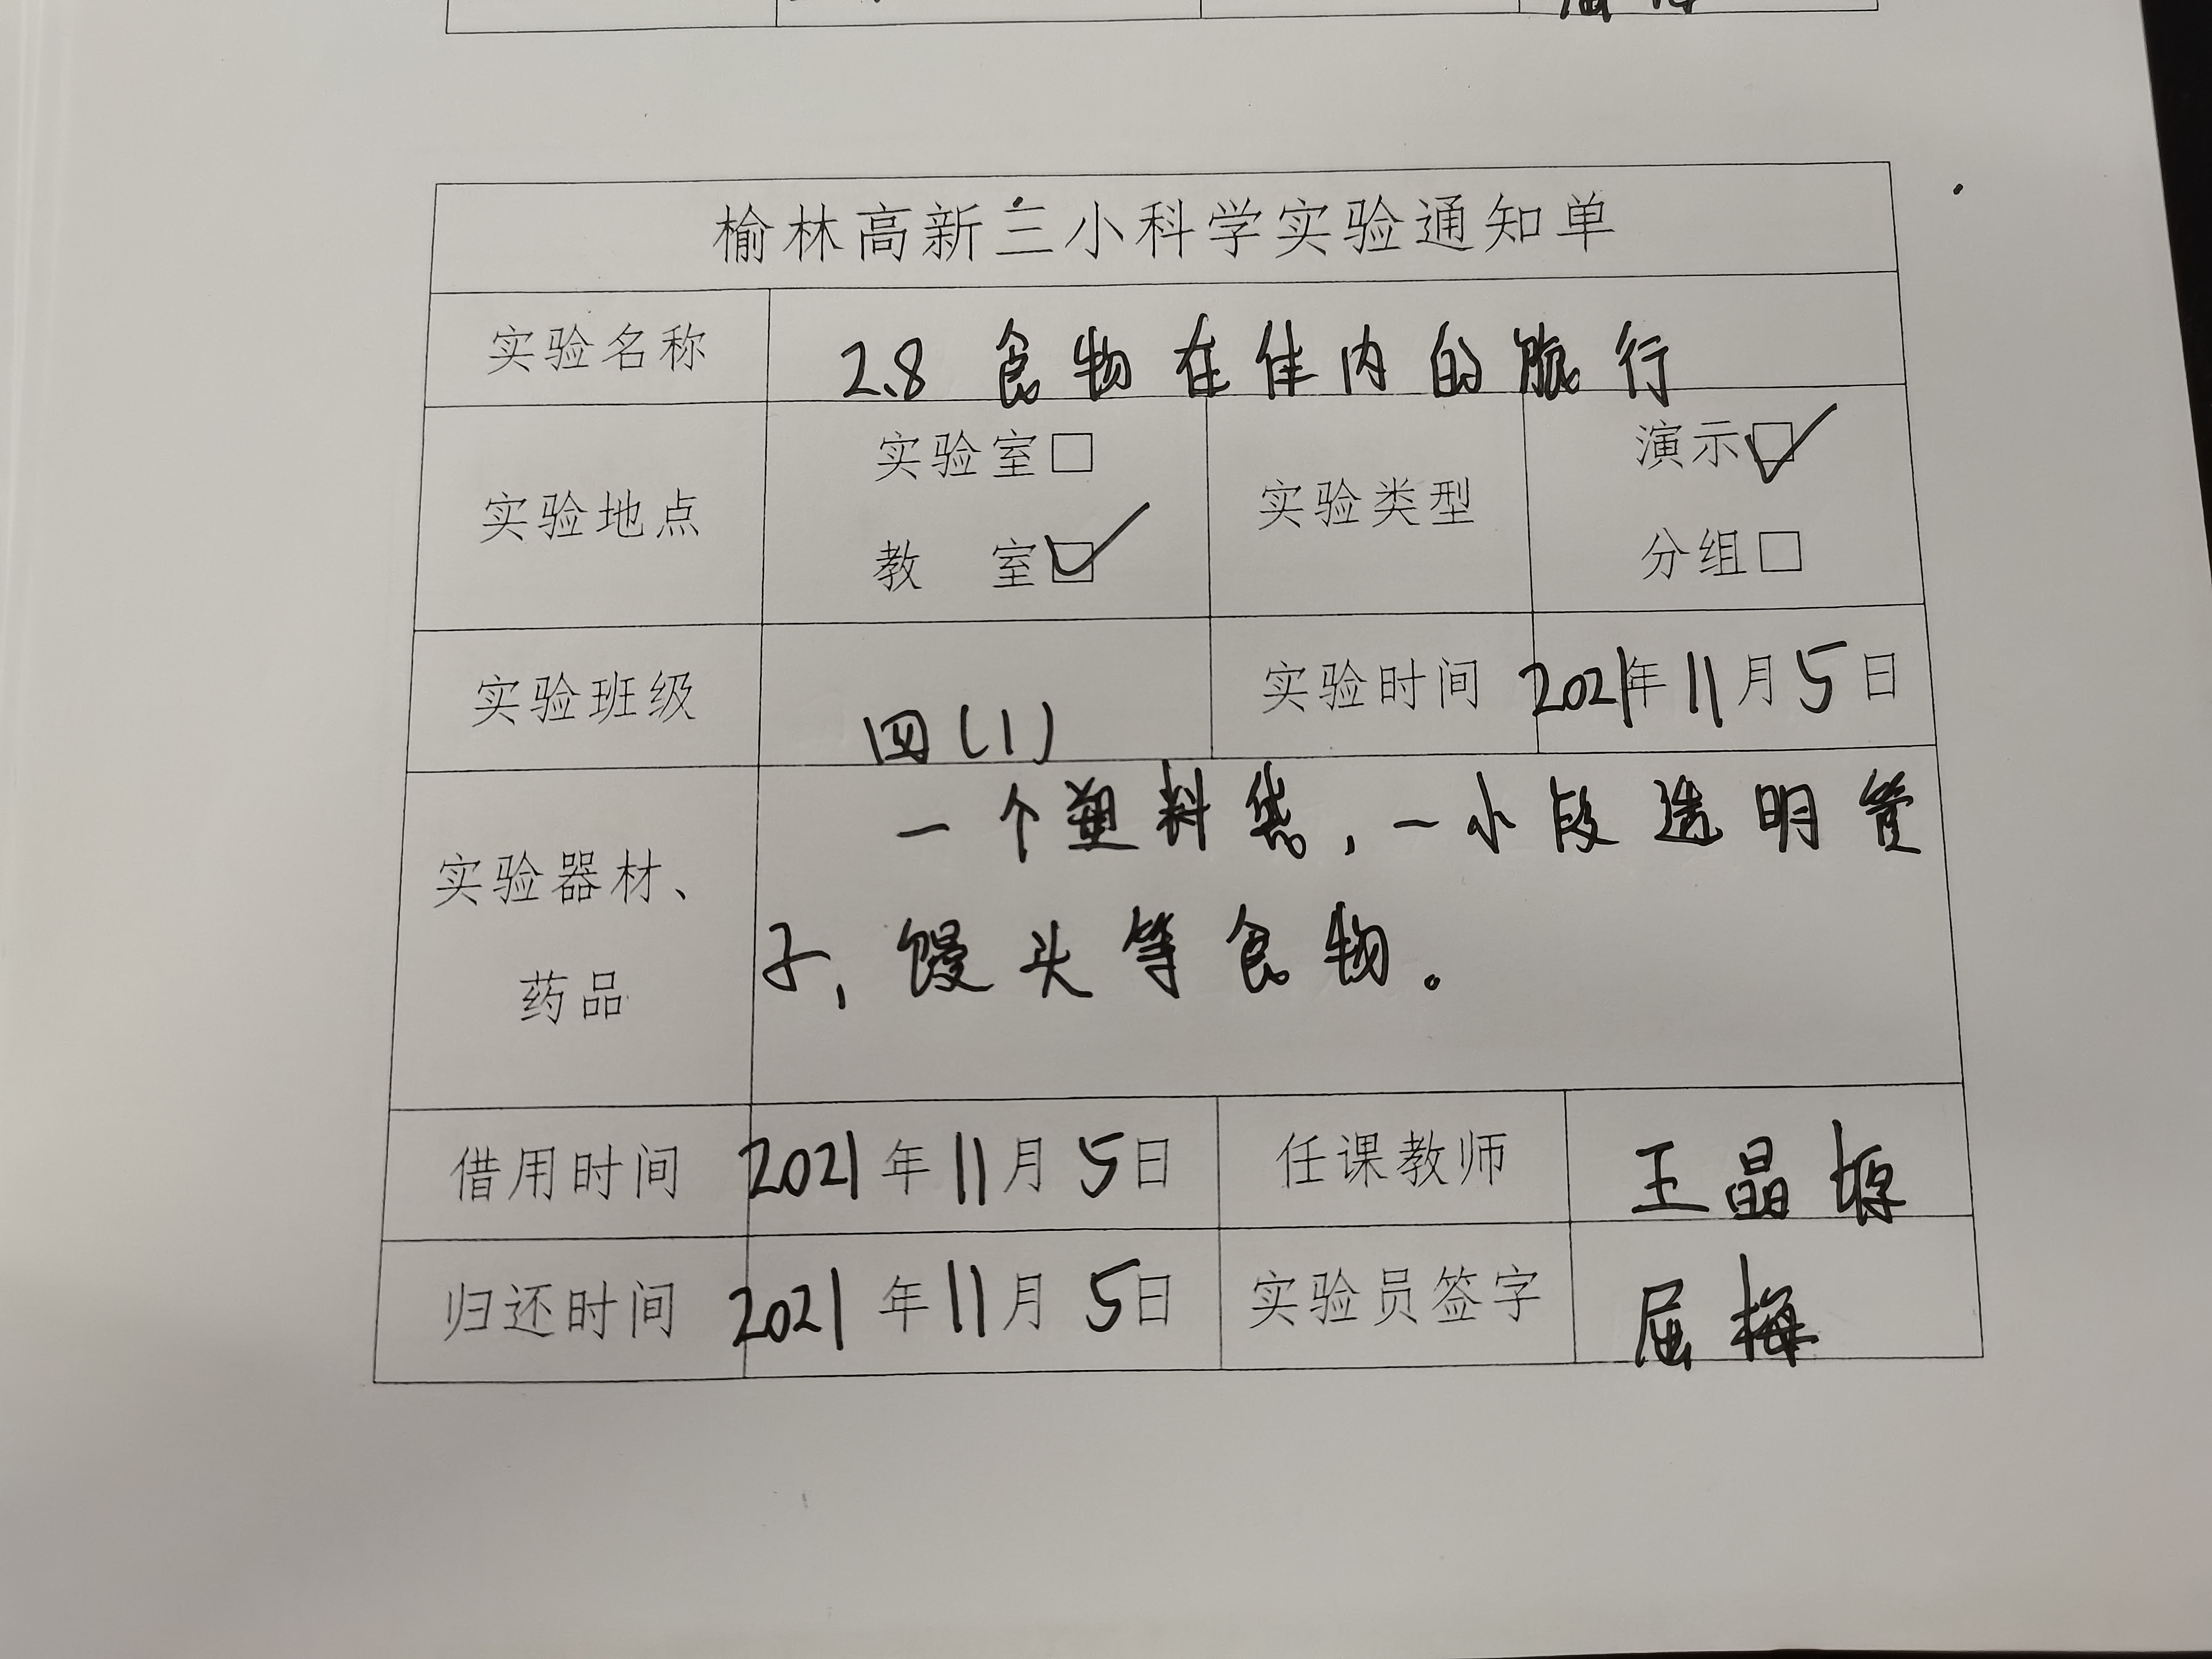 榆林高新三小科学实验通知单
实验名称 2.8 食物在体内的旅行
实验地点 实验室□ 教 室☑ 实验类型 演示☑ 分组□
实验班级 四(1) 实验时间 2021年11月5日
实验器材、药品 一个塑料袋,一小段透明管
子,馒头等食物。
借用时间 2021年11月5日 任课教师 王晶
归还时间 2021年11月5日 实验员签字 屈梅